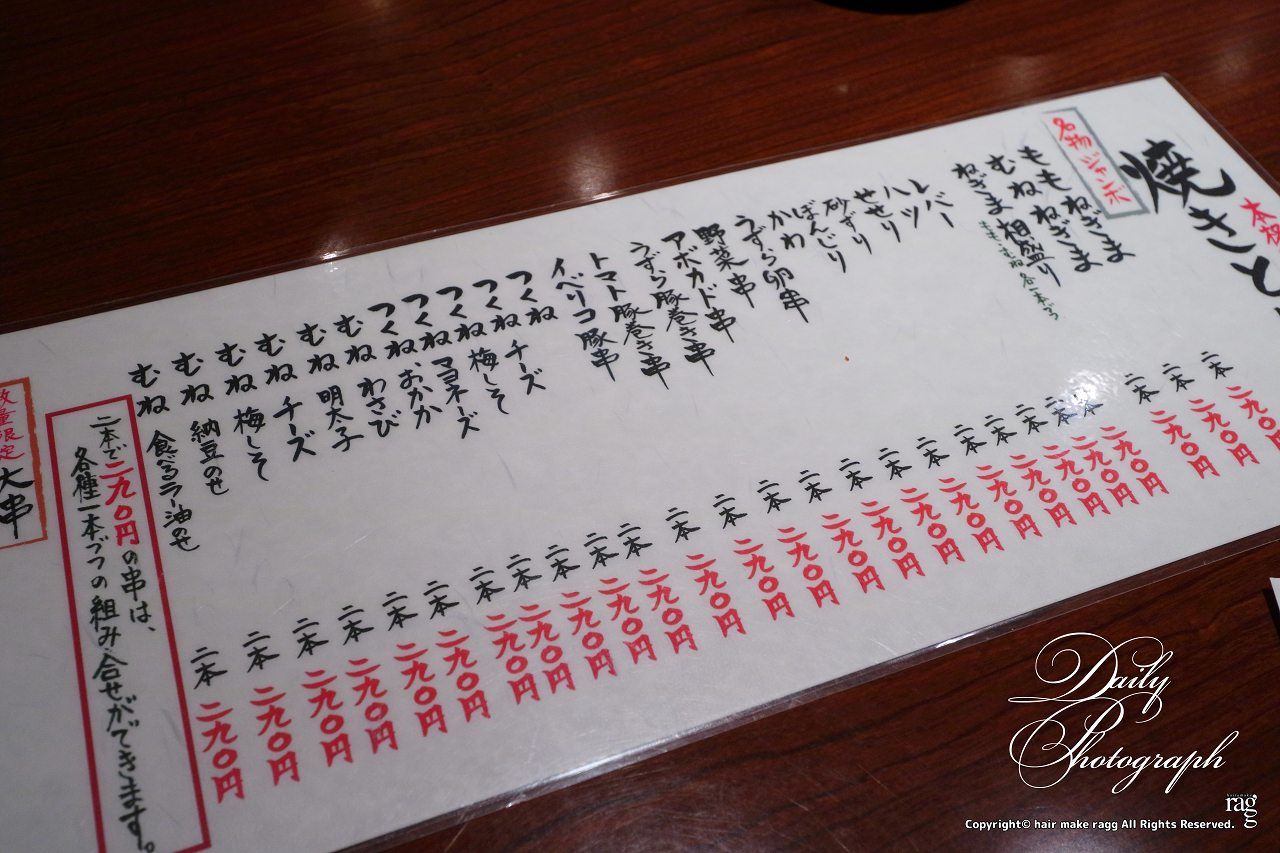 本
焼きと
名物ジャンボ
ももねぎま 二本 二九〇円
むねねぎま 二本 二九〇円
ねぎま相盛り 二本 二九〇円
もも・むね各一本づつ
レバー 二本 二九〇円
ハツ 二本 二九〇円
せせり 二本 二九〇円
砂ずり 二本 二九〇円
ぼんじり 二本 二九〇円
かわ 二本 二九〇円
うずら卵串 二本 二九〇円
野菜串 二本 二九〇円
アボカド串 二本 二九〇円
うずら豚巻き串 二本 二九〇円
トマト豚巻き串 二本 二九〇円
イベリコ豚串 二本 二九〇円
つくね 二本 二九〇円
つくねチーズ 二本 二九〇円
つくね梅しそ 二本 二九〇円
つくねマヨネーズ 二本 二九〇円
つくねおかか 二本 二九〇円
むねわさび 二本 二九〇円
むね明太子 二本 二九〇円
むねチーズ 二本 二九〇円
むね梅しそ 二本 二九〇円
むね納豆のせ 二本 二九〇円
むね食べるラー油のせ 二本 二九〇円
二本で二九〇円の串は、
各種一本づつの組み合せができます。
数量限定
大串
Daily
Photograph
ragg
Copyright© hair make ragg All Rights Reserved.